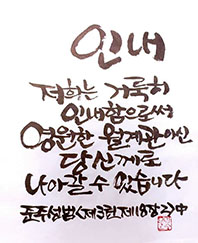 인내
저희는 거룩히
인내함으로써
영원한 월계관이신
당신께로
나아갈 수 있습니다
준주성범<제3권 제18장 2>中